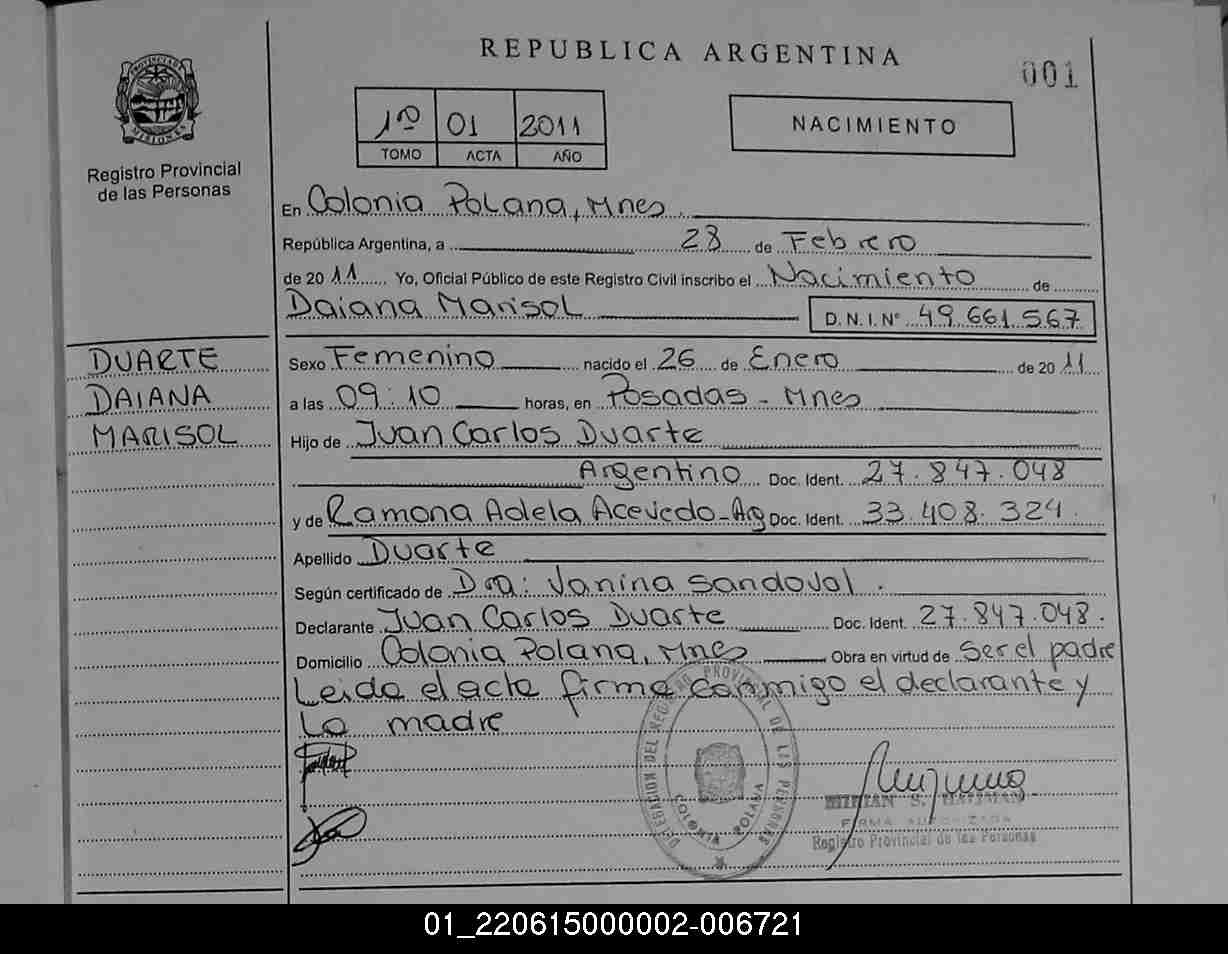 REPUBLICA ARGENTINA
001
PROVINCIA DE MISIONES
Registro Provincial
de las Personas
1º 01 2011
TOMO ACTA AÑO
NACIMIENTO
En Colonia Polana, Mnes
República Argentina, a 28 de Febrero
de 2011 Yo, Oficial Público de este Registro Civil inscribo el Nacimiento de
Daiana Marisol D.N.I.Nº 49.661.567
DUARTE
DAIANA
MARISOL
Sexo Femenino nacido el 26 de Enero de 2011
a las 09:10 horas, en Posadas - Mnes
Hijo de Juan Carlos Duarte
Argentino Doc. Ident. 27.847.048
y de Ramona Adela Acevedo - Arg Doc. Ident. 33.408.324
Apellido Duarte
Según certificado de Dra: Vanina Sandoval.
Declarante Juan Carlos Duarte Doc. Ident. 27.847.048.
Domicilio Colonia Polana, Mnes Obra en virtud de Ser el padre
Leida el acta firma conmigo el declarante y
La madre
DELEGACION DEL REGISTRO PROVINCIAL DE LAS PERSONAS
COLONIA POLANA
MIRIAN S.
FIRMA AUTORIZADA
Registro Provincial de las Personas
01_220615000002-006721